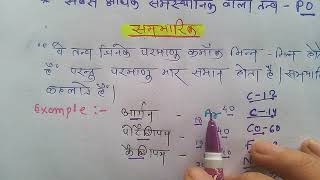 * सबसे अधिक समस्थानिक वाला तत्व - PO
समभारिक
"वे तत्व जिनके परमाणु क्रमांक भिन्न - भिन्न होते
हैं परन्तु परमाणु भार समान होता है। समभारि
कहलाते हैं।
Example :- आर्गन - 18 Ar 40
पोटैशियम - 40
कैल्शियम -
C-12
C-14
CO-60